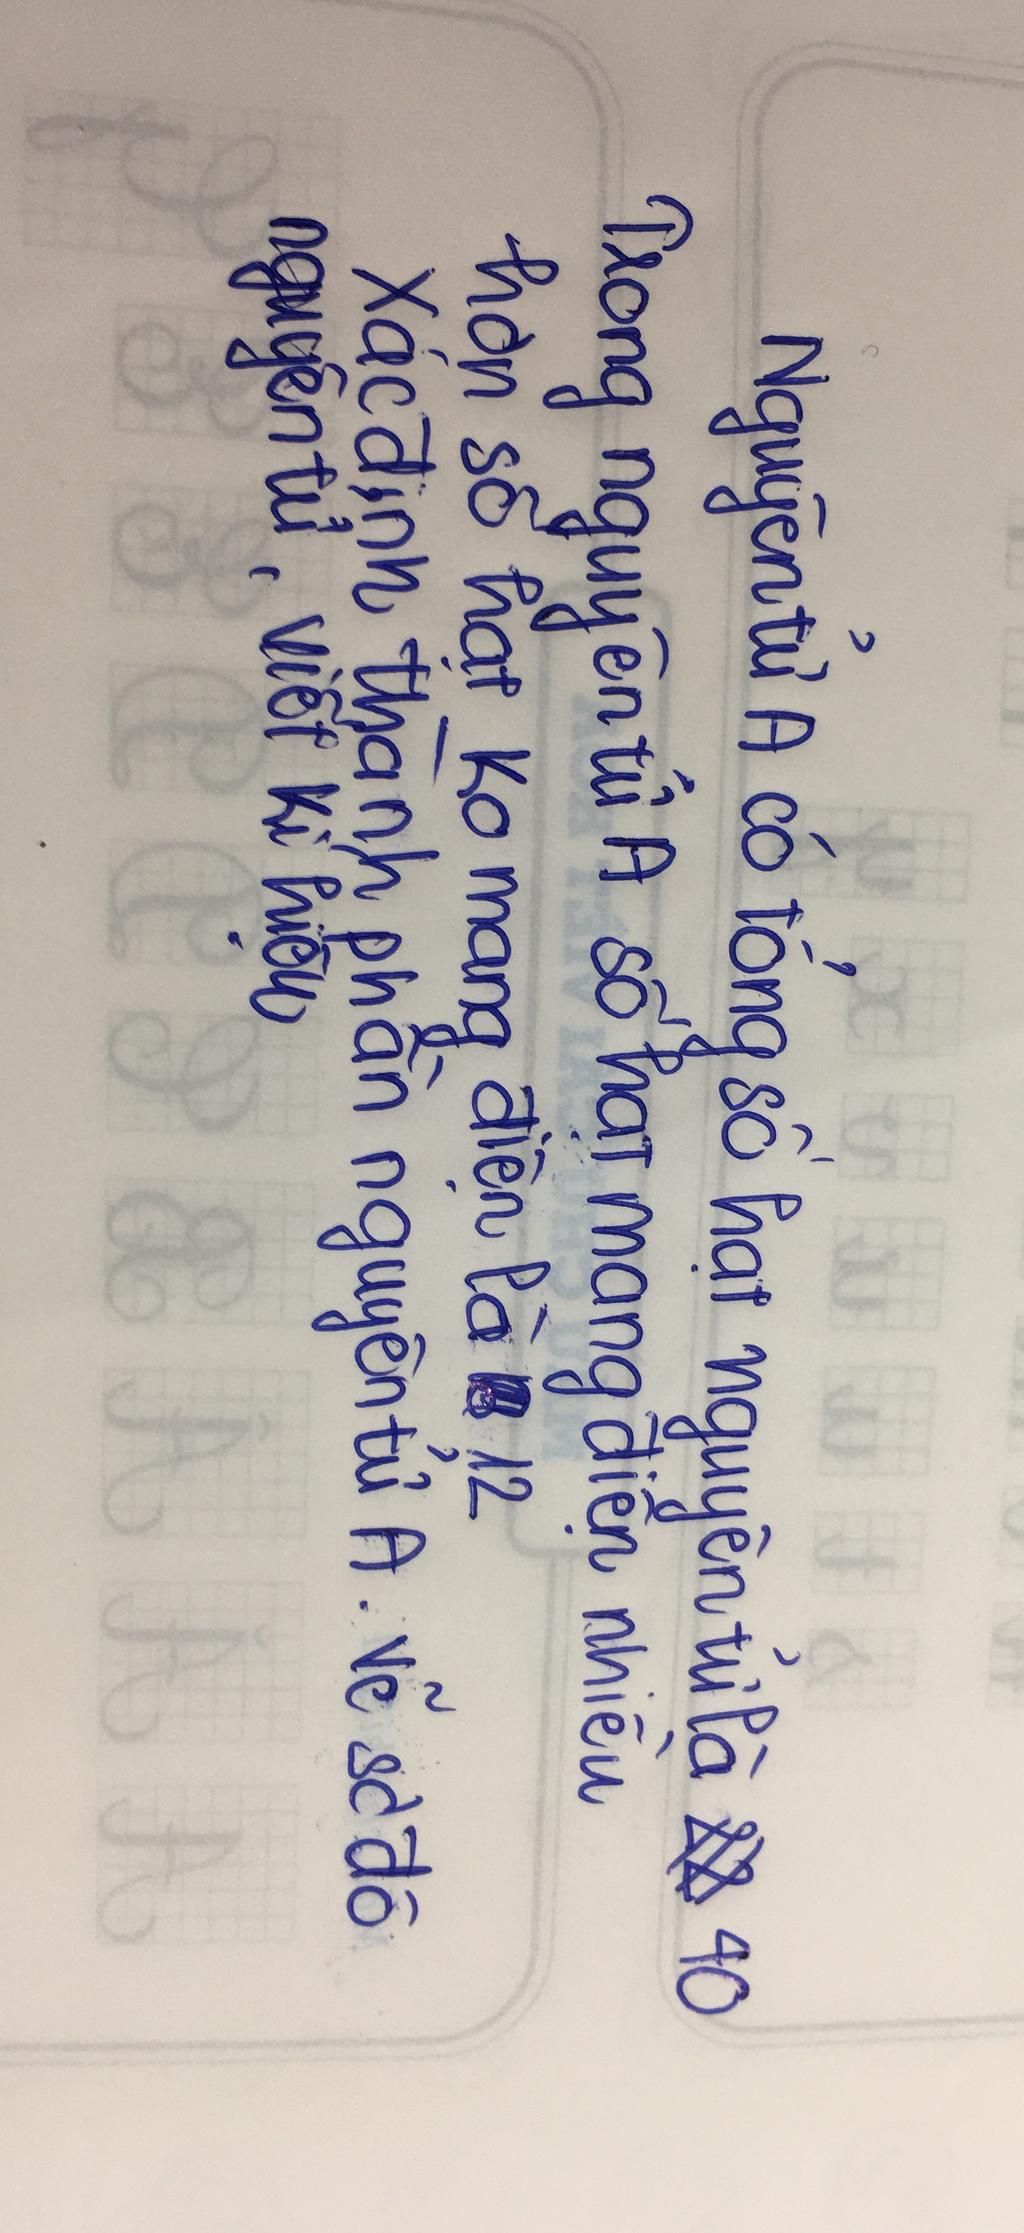 Nguyên tử A có tổng số hạt nguyên tử là 40
Trong nguyên tử A số hạt mang điện nhiều
hơn số hạt ko mang điện là 12
Xác định thành phần nguyên tử A. Vẽ sơ đồ
nguyên tử, viết kí hiệu